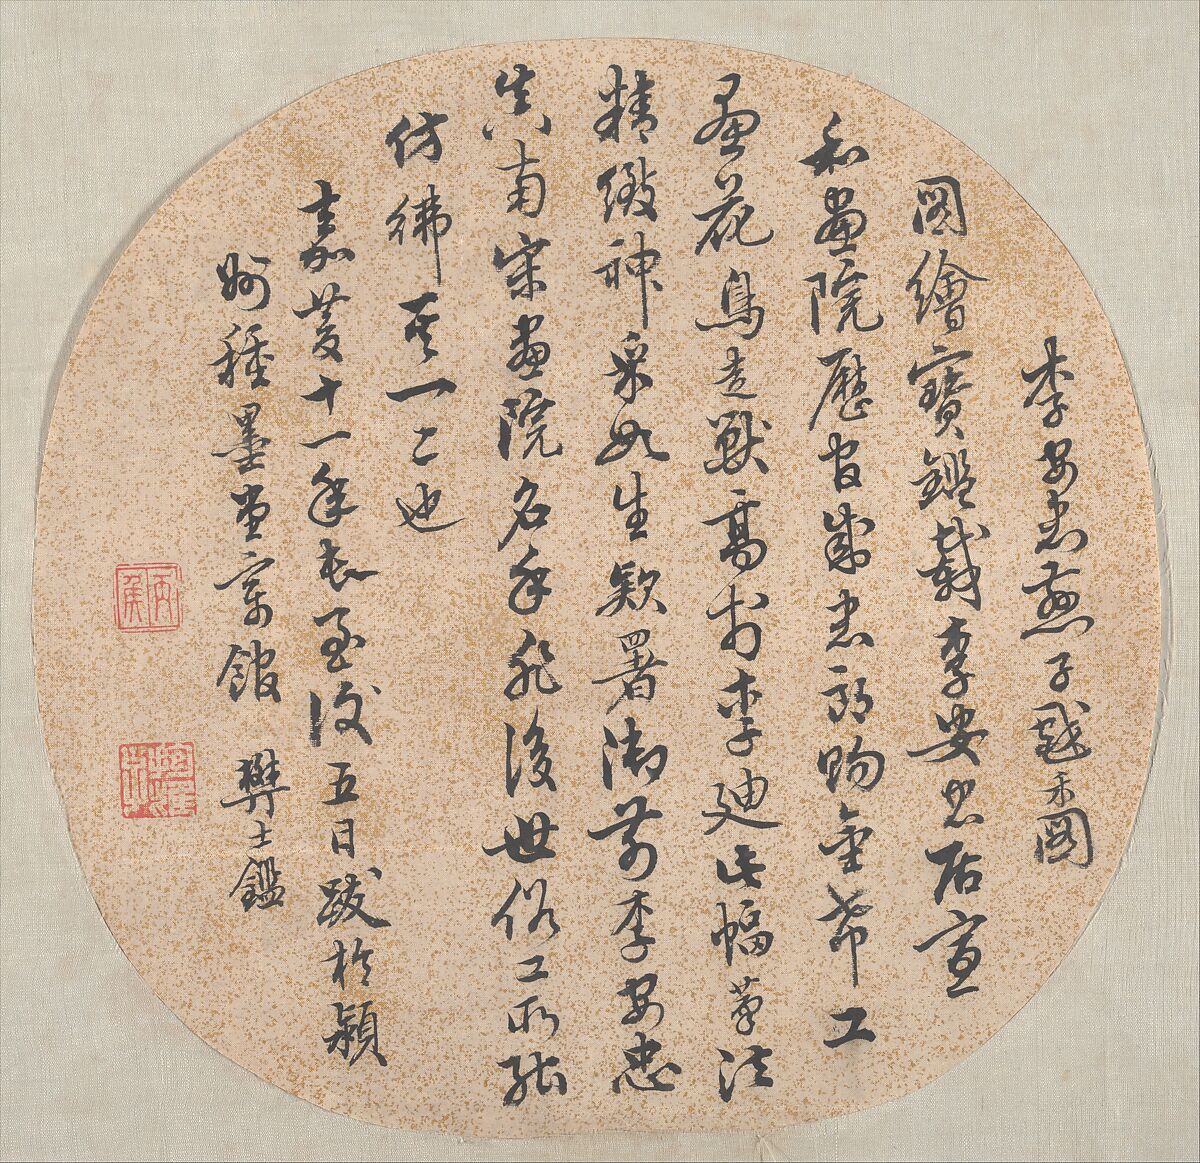 李安忠燕子戲禾圖
圖繪寶鑑載李安忠居宣
和畫院歷官成忠郎賜金帶工
畫花鳥走獸高于李廸此幅筆法
精緻神采如生欵署御前李安忠
真南宋畫院名手非後世俗工所能
仿彿其一二也
嘉慶十一年長至後五日跋於潁
州種墨堂寓館 樊士鑑